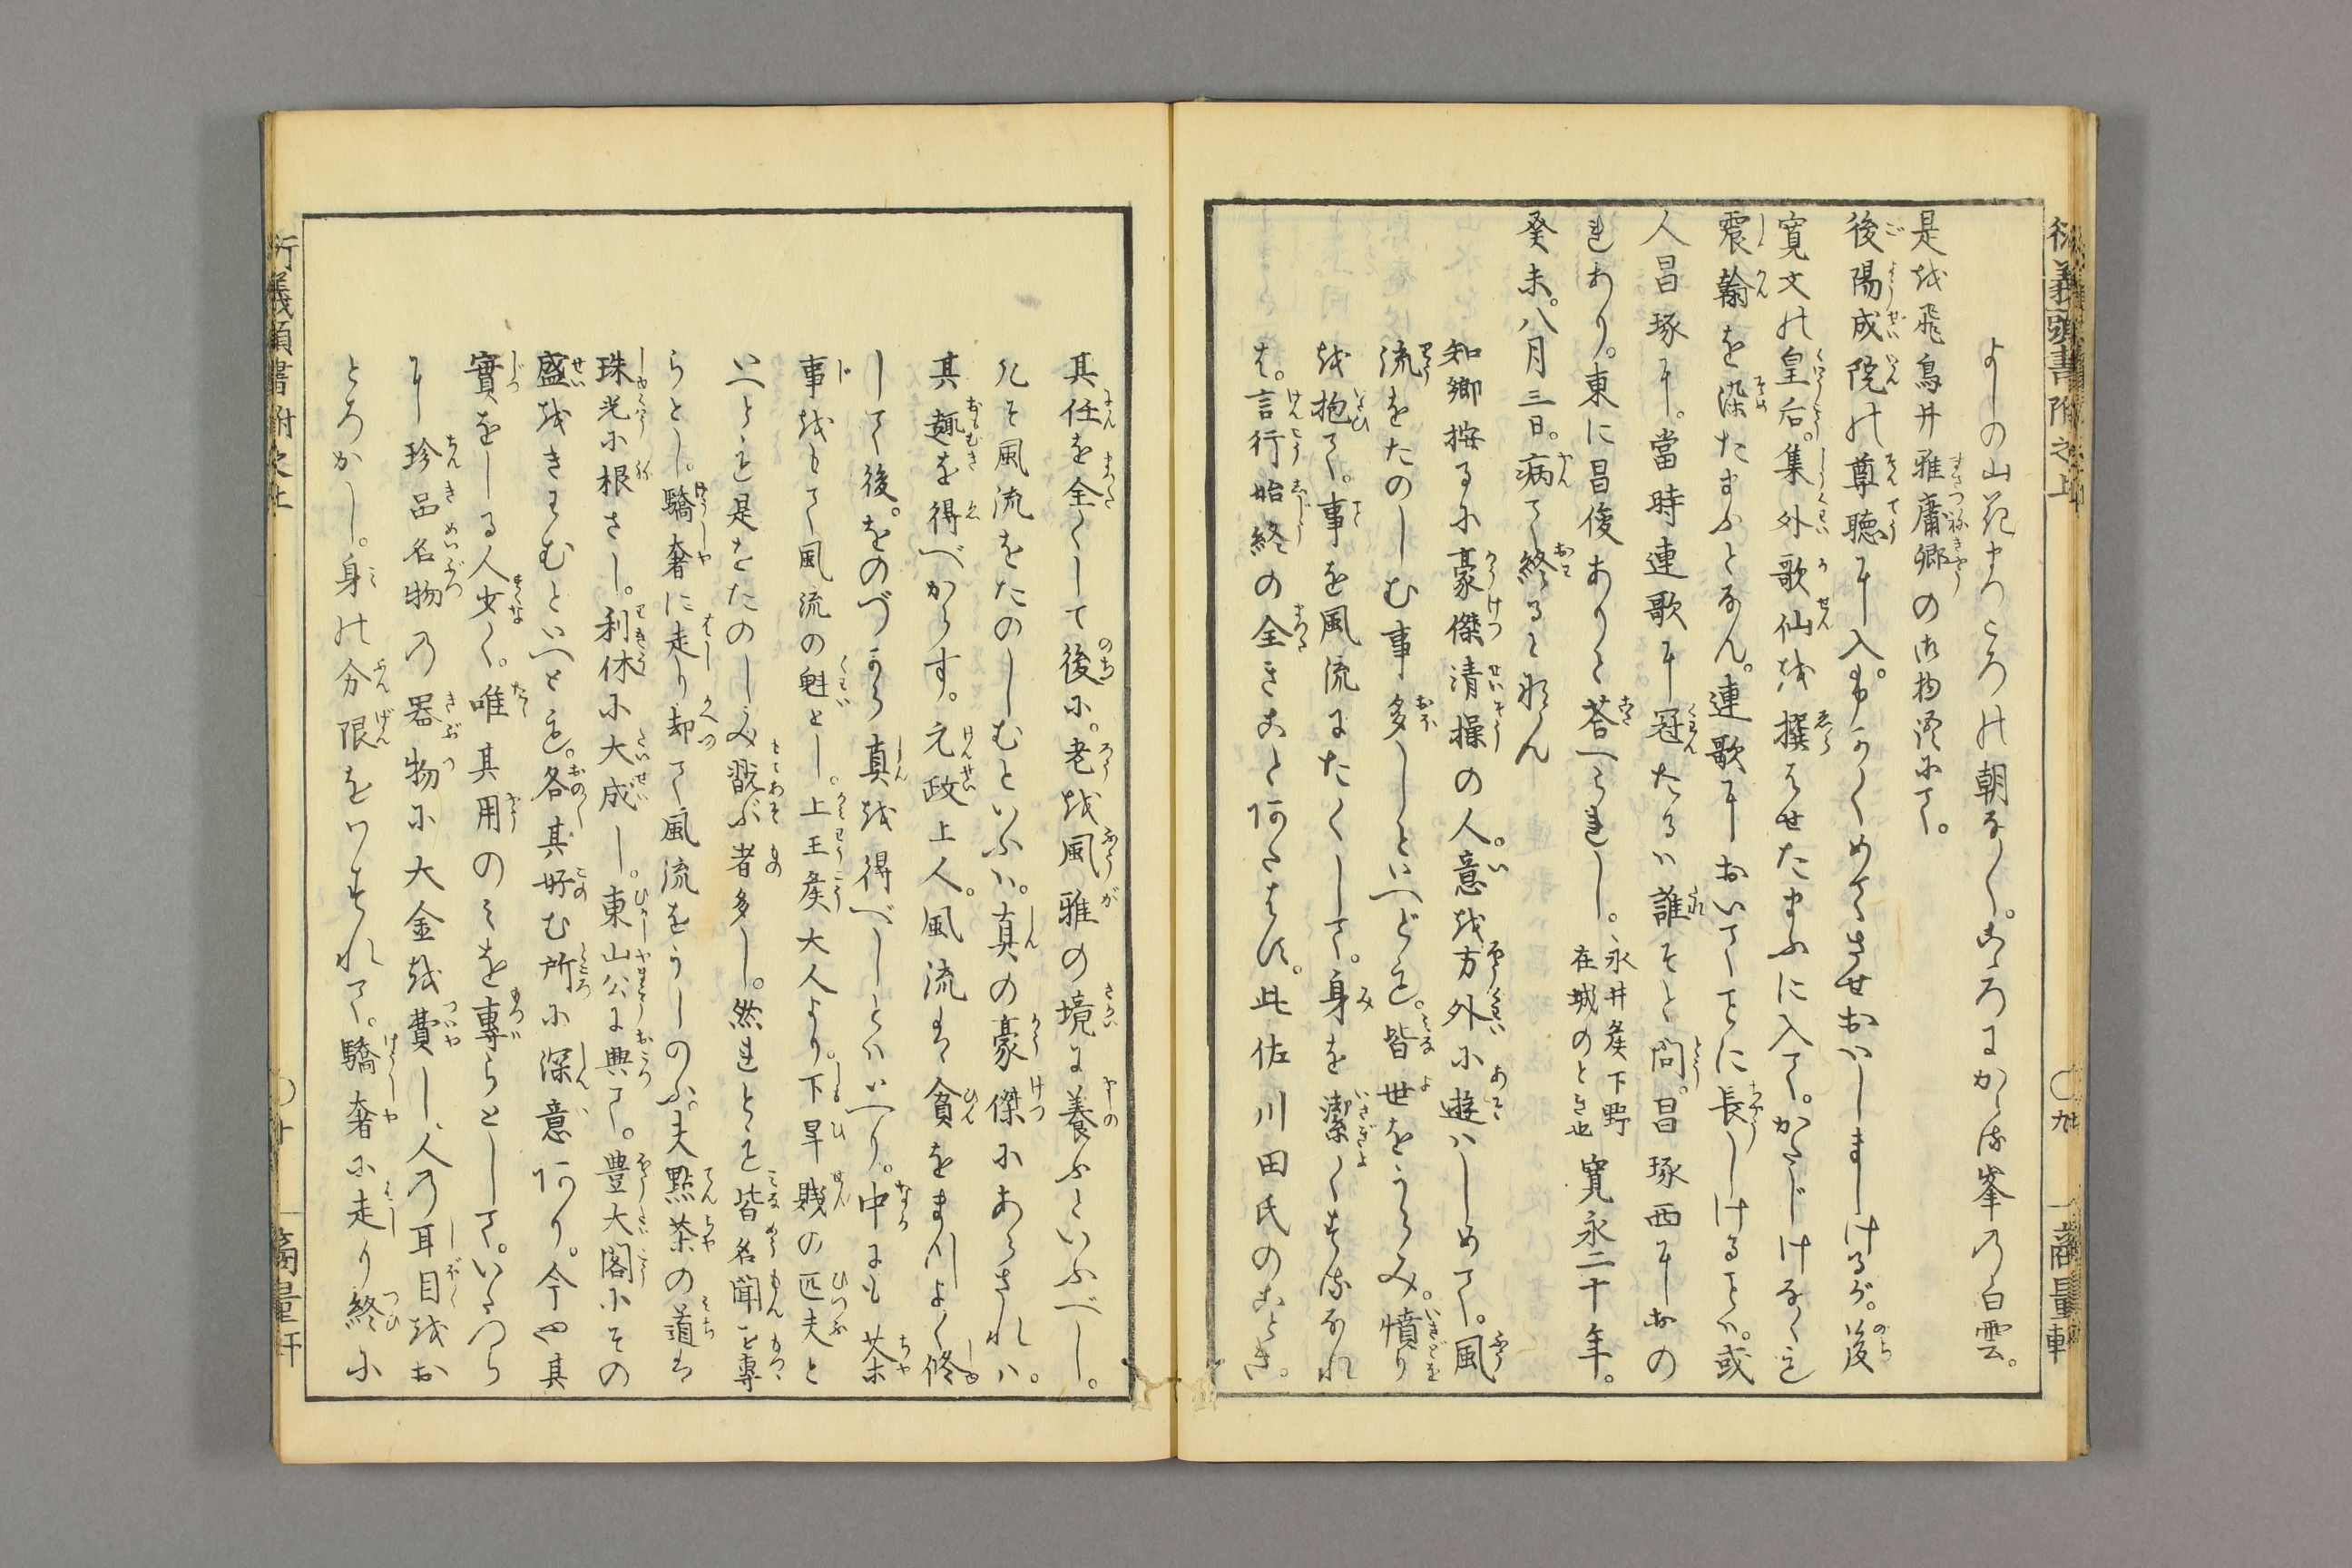 よしの山花まつころの朝な〳〵。こゝろにかゝる峯の白雲。
是を飛鳥井雅庸卿の御物語にて。
後陽成院の尊聴に入。ふかくめてさせおはしましけるが。後
寛文の皇后。集外歌仙を撰はせたまふに入て。かたじけなくも
震翰を染たまふとなん。連歌においてことに長しけることハ。或
人昌琢に。當時連歌に冠たるハ誰そと問。昌琢西におの
れあり。東に昌俊ありと荅へられし。永井矦下野在城のとき也 寛永二十年。
癸未。八月三日。病て終ると社ん
知郷按るに豪傑清操の人。意を方外に遊ハしめて。風
流をたのしむ事多しといへども。皆世をうらみ。憤り
を抱て。事を風流にたくして。身を潔くするなれ
は。言行始終の全きことあたはす。此佐川田氏のことき。
其任を全くして後に。老を風雅の境に養ふといふべし。
凡そ風流をたのしむといふハ。真の豪傑にあらされハ。
其趣を得べからす。元政上人。風流は貧をまつよく修
して後。をのづから真を得べしとハいへり。中にも茶
事をもて風流の魁とし。上王矦大人より。下卑賎の匹夫と
いへとも是をたのしみ翫ぶ者多し。然れとも皆名聞を専
らとし。驕奢に走り却て風流をうしのふ。夫點茶の道は
珠光に根さし。利休に大成し。東山公に興て。豊大閤にその
盛をきわむといへとも。各其好む所に深意あり。今や其
實をしる人少く。唯其用のミを專らとして。いたつら
に珍器名物の器物に大金を費し、人の耳目をお
とろかし。身の分限をいわすれて。驕奢に走り終に
衍義頭書附之上
〇九
一商量軒
衍義頭書附之上
〇十
一商量軒